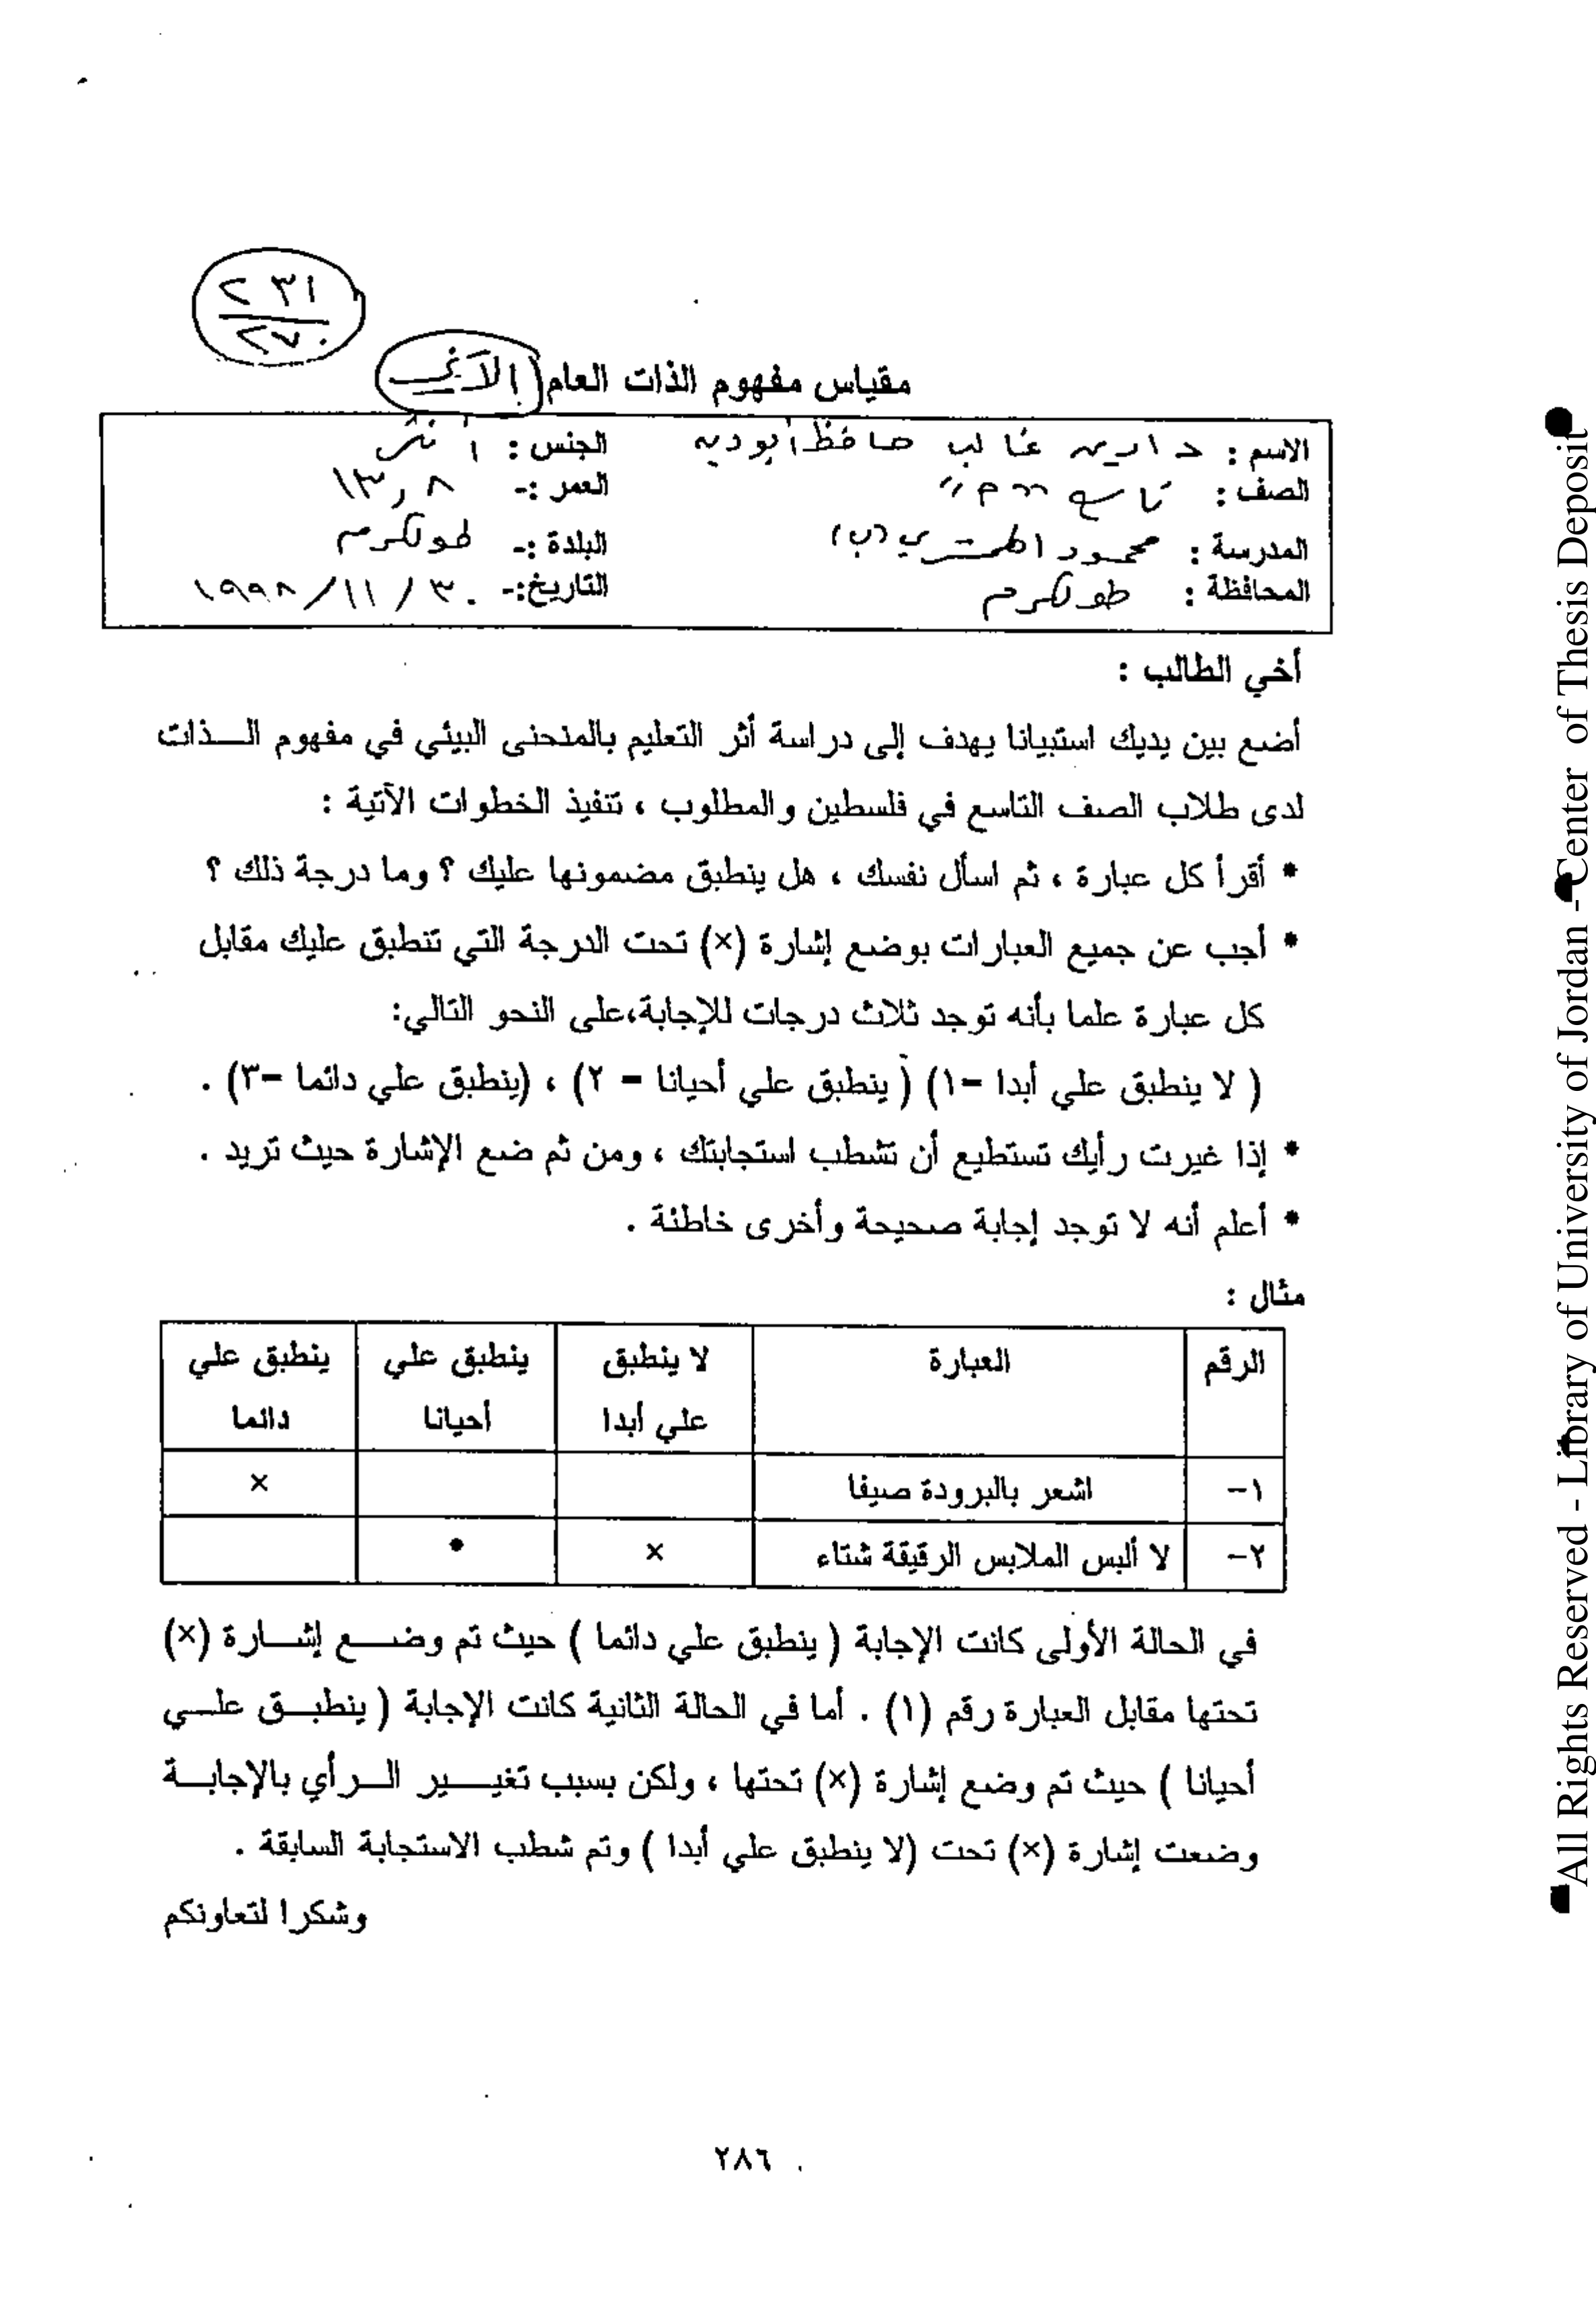 ٢٣١
٢٧٠
مقياس مفهوم الذات العام
الاسم : غالب حافظ أبوديه
الجنس : أنثى
الصف : تاسع
العمر :- ١٣,٨
المدرسة : محمود (ب)
البلدة :- طولكرم
المحافظة : طولكرم
التاريخ:- ٣٠ / ١١ / ١٩٩٨
أخي الطالب :
أضع بين يديك استبيانا يهدف إلى دراسة أثر التعليم بالمنحنى البيئي في مفهوم الذات
لدى طلاب الصف التاسع في فلسطين والمطلوب ، تنفيذ الخطوات الآتية :
* أقرأ كل عبارة ، ثم اسأل نفسك ، هل ينطبق مضمونها عليك ؟ وما درجة ذلك ؟
* أجب عن جميع العبارات بوضع إشارة (×) تحت الدرجة التي تنطبق عليك مقابل
كل عبارة علما بأنه توجد ثلاث درجات للإجابة،على النحو التالي:
( لا ينطبق علي أبدا =١) ( ينطبق علي أحيانا = ٢) ، (ينطبق علي دائما =٣) .
* إذا غيرت رأيك تستطيع أن تشطب استجابتك ، ومن ثم ضع الإشارة حيث تريد .
* أعلم أنه لا توجد إجابة صحيحة وأخرى خاطئة .
مثال :
الرقم العبارة لا ينطبق علي أبدا ينطبق علي أحيانا ينطبق علي دائما
١- اشعر بالبرودة صيفا ×
٢- لا ألبس الملابس الرقيقة شتاء × •
في الحالة الأولى كانت الإجابة ( ينطبق علي دائما ) حيث تم وضع إشارة (×)
تحتها مقابل العبارة رقم (١) . أما في الحالة الثانية كانت الإجابة ( ينطبق علي
أحيانا ) حيث تم وضع إشارة (×) تحتها ، ولكن بسبب تغيير الرأي بالإجابة
وضعت إشارة (×) تحت (لا ينطبق علي أبدا ) وتم شطب الاستجابة السابقة .
وشكرا لتعاونكم
٢٨٦
All Rights Reserved - Library of University of Jordan - Center of Thesis Deposit